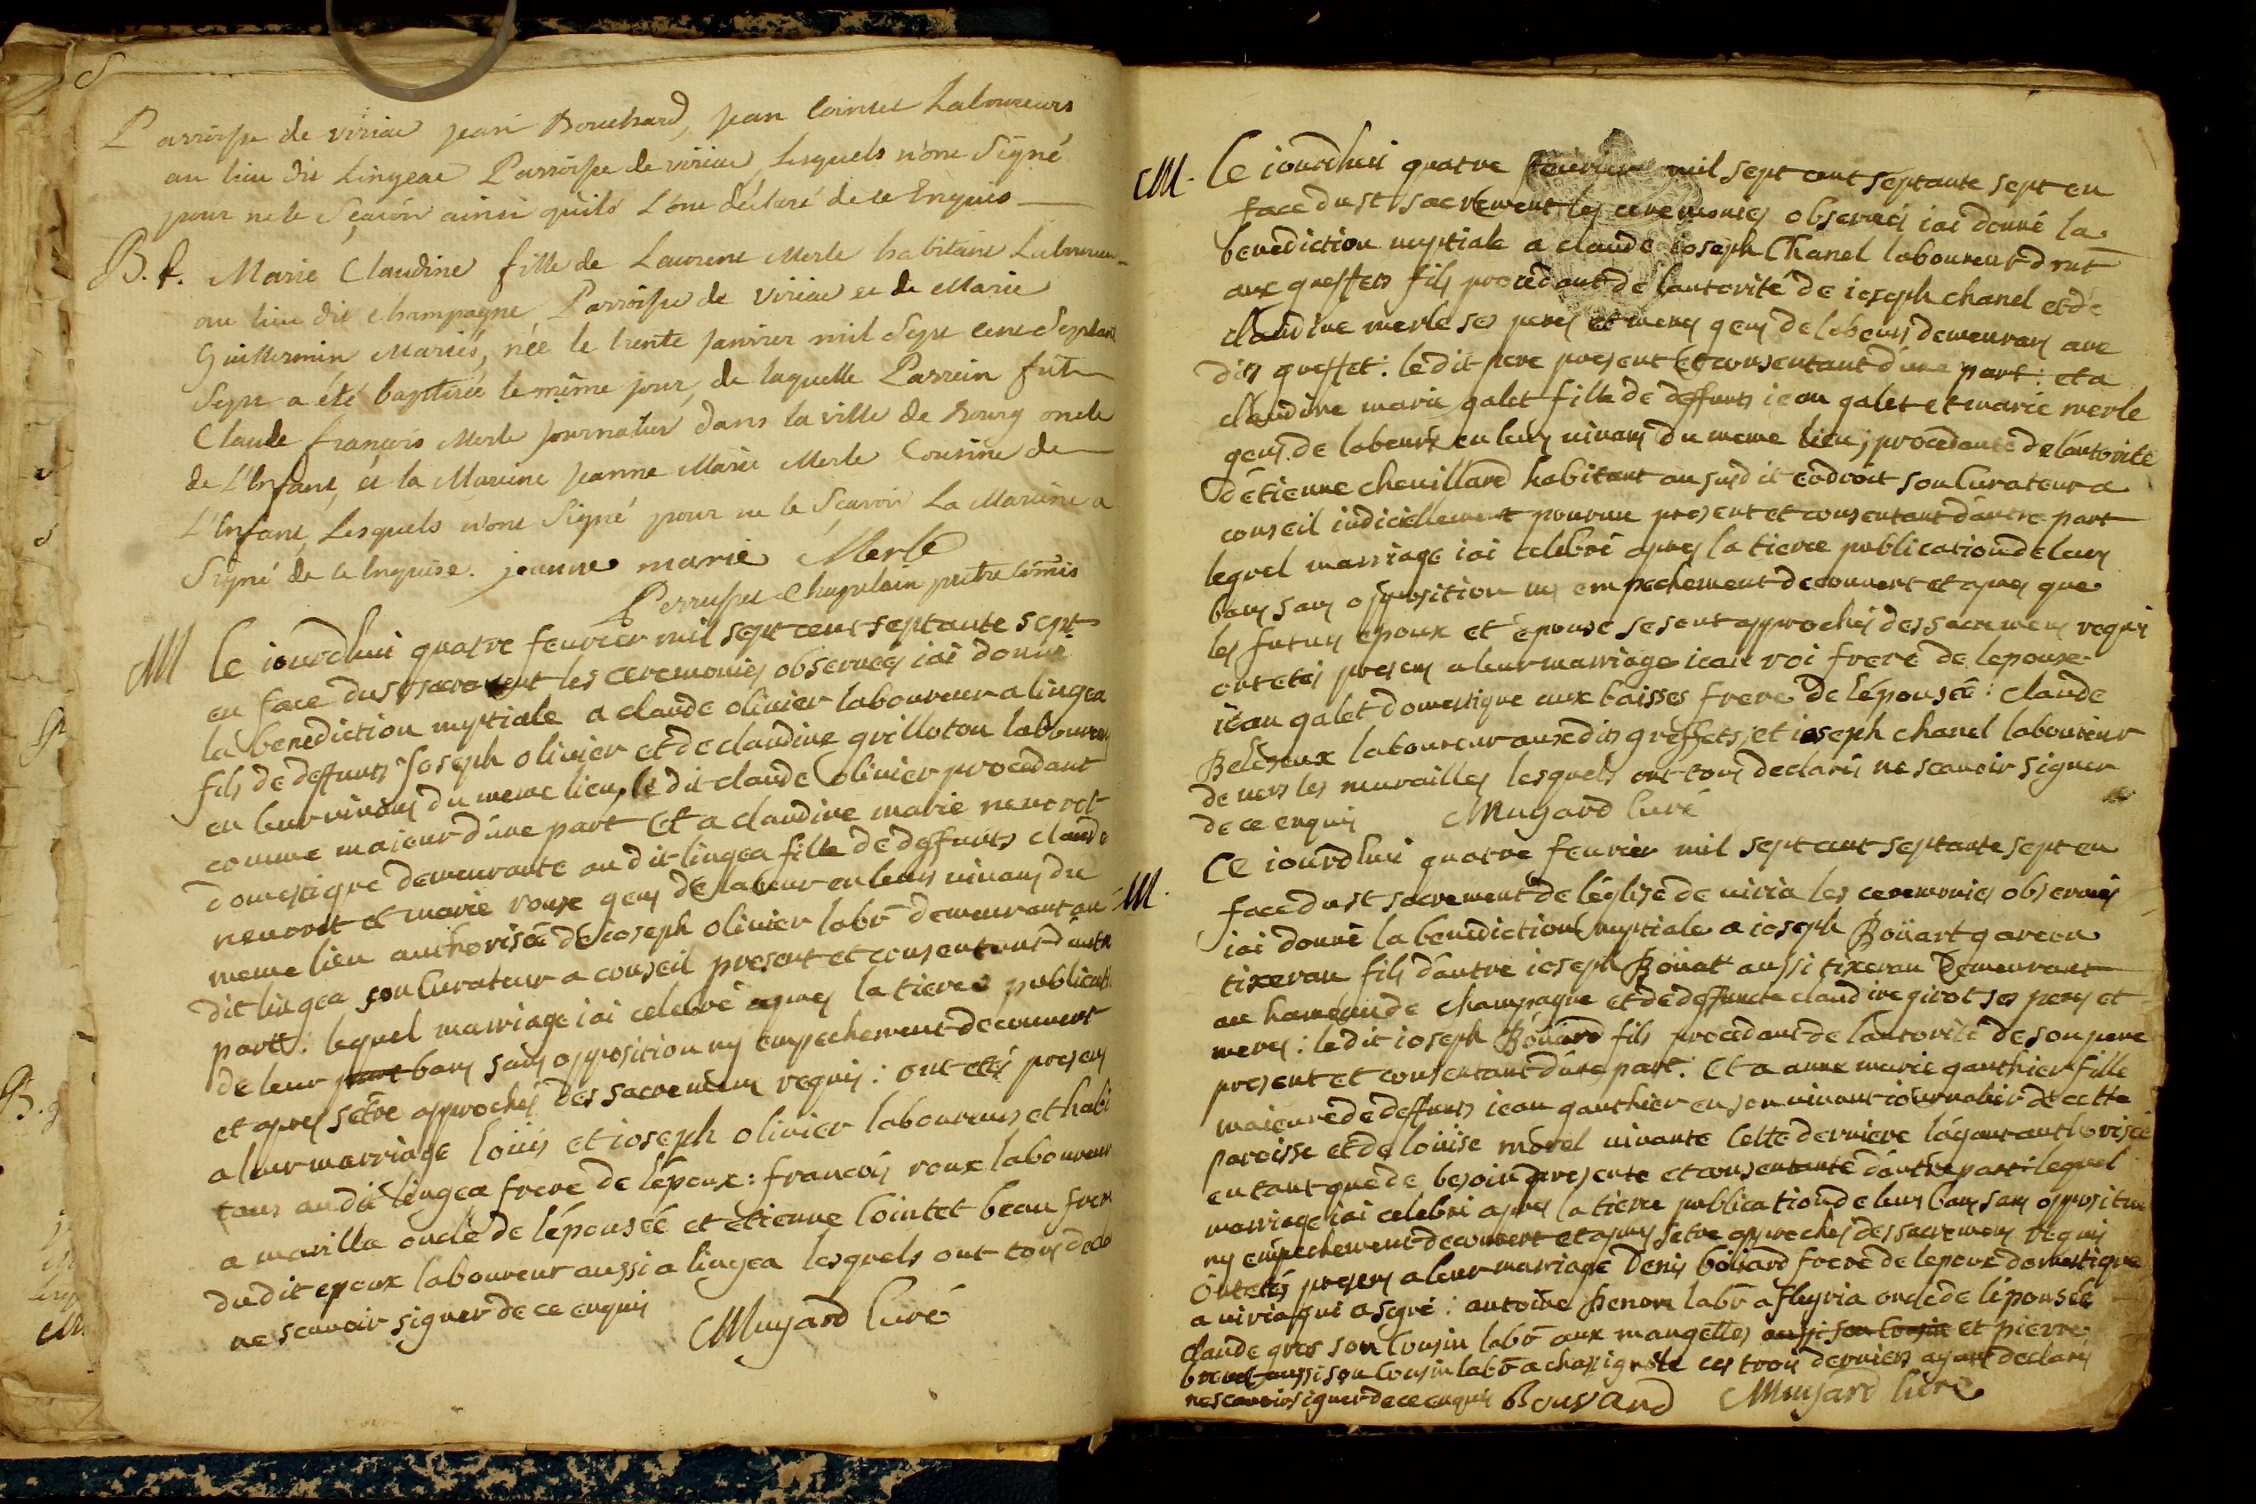 Parroisse de viriac jean Bouchard, jean Cointet Laboureurs
au lieu dit Lingeac Parroisse de viriac, Lesquels n'ont Signé
pour ne le Sçavoir ainsi quils L'ont déclaré de ce Enquis
B. f. Marie Claudine fille de Laurent Merle habitant Laboureur
au lieu dit Champagne Parroisse de Viriac et de Marie
Guillermin Mariés, née le trente Janvier mil Sept cent Septante
Sept a été baptisée le même jour, de laquelle Parrein fut
Claude françois Merle journalier dans la ville de Bourg oncle
de L'Enfant, et la Mareine Jeanne Marie Merle Cousine de
L'Enfant, Lesquels n'ont Signé pour ne le Sçavoir La Mareine a
Signé de ce Enquise. jeanne marie Merle
Perruset Chapelain prêtre Commis
M Ce iourdhui quatre feurier mil sept cent septante sept
en face du st sacrement les ceremonies obseruees iai donné
la benediction nuptiale a claude oliuier laboureur a lingea
fils de deffunts Joseph oliuier et de claudine guilloton laboureurs
en leur viuans du meme lieu, le dit claude oliuier procedant
comme maieur d'une part Et a claudine marie neuoret
domestique demeurante au dit lingea fille de deffunts claude
neuoret et marie roux gens de labeur en leurs uiuans du
meme lieu authorisée de ioseph oliuier labr demeurant au
dit lingea son Curateur a conseil present et consentant d'autre
part: lequel marriage iai celebré apres la tierce publication
de leur part bans sans opposition ny empechement decouuert
et apres sêtre approchés des sacremens requis: ont etés presens
a leur marriage loüis et ioseph oliuier laboureurs et habi
tans au dit lingea frere de lépoux: francois roux laboureur
a mavilla oncle de lépousée et etienne Cointet beau frere
du dit epoux laboureur aussi a lingea lesquels ont tous declaré
ne scauoir signer de ce enquis
Muyard Curé
M. Ce iourdhui quatre feurier mil sept cent septante sept en
face du st sacrement les ceremonies obseruées iai donné la
benediction nuptiale a claude ioseph Chanel laboureur dmt
aux greffets fils procedant de lautorité de ioseph chanel et de
claudine merle ses peres et meres gens de labeurs demeurans aux
dits greffet: le dit pere present et consentant d'une part: et a
claudine marie galet fille de deffunts iean galet et marie merle
gens de labeurs en leurs uiuans du meme lieu; procedante de l'autorité
d'étienne cheuillard habitant au susdit endroit son Curateur a
conseil iudiciellement pourvue present et consentant d'autre part
lequel marriage iai celebré apres la tierce publication de leurs
bans sans opposition ny empechement decouuert et apres que
les futurs epoux et épouse se sont approchés des sacremens requis
ont etés presens a leur marriage iean roi frere de lepouse
iean galet domestique aux baisses frere de lépousée: Claude
Beleseux laboureur ausedits greffets, et ioseph chanel laboureur
de uers les murailles lesquels ont tous declarés ne scauoir signer
de ce enquis Muyard Curé
M. Ce iourdhui quatre feurier mil sept cent septante sept en
face du st sacrement de l'églize de uiria les ceremonies obseruées
iai donné la benediction nuptiale a ioseph Boüart garcon
tixeran fils d'autre ioseph Boüat aussi tixeran Demeurant
au hameau de Champagne et de deffuncte claudine girot ses peres et
meres: le dit ioseph Boüard fils procedant de lautorité de son pere
present et consentant d'une part: Et a anne marie gauthier fille
maieure de deffunts iean gauthier en son uiuant iournalier de cette
paroisse et de loüise morel uiuante Cette derniere layant authorisée
en tant que de besoin presente et consentante d'autre part: lequel
marriage iai celebré apres la tierce publication de leurs bans sans opposition
ny empechement decouuert et apres sêtre approchés des sacremens requis
ont etés presens a leur marriage Denis boüard frere de lepoux domestique
a uiria qui a signé: antoine henon labr a fleyria oncle de lépousée
claude gros son Cousin labr aux mangettes aussi son Cousin et pierre
brunet aussi son Cousin labr a chassignole ces trois derniers ayant declarés
ne scauoir signer de ce enquis Bouvard Muyard Curé